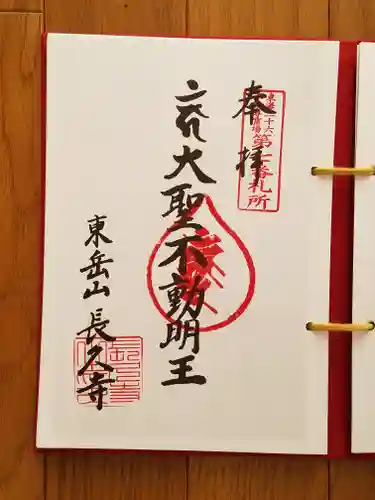 奉拝
第七番札所
大聖不動明王
東岳山 長久寺